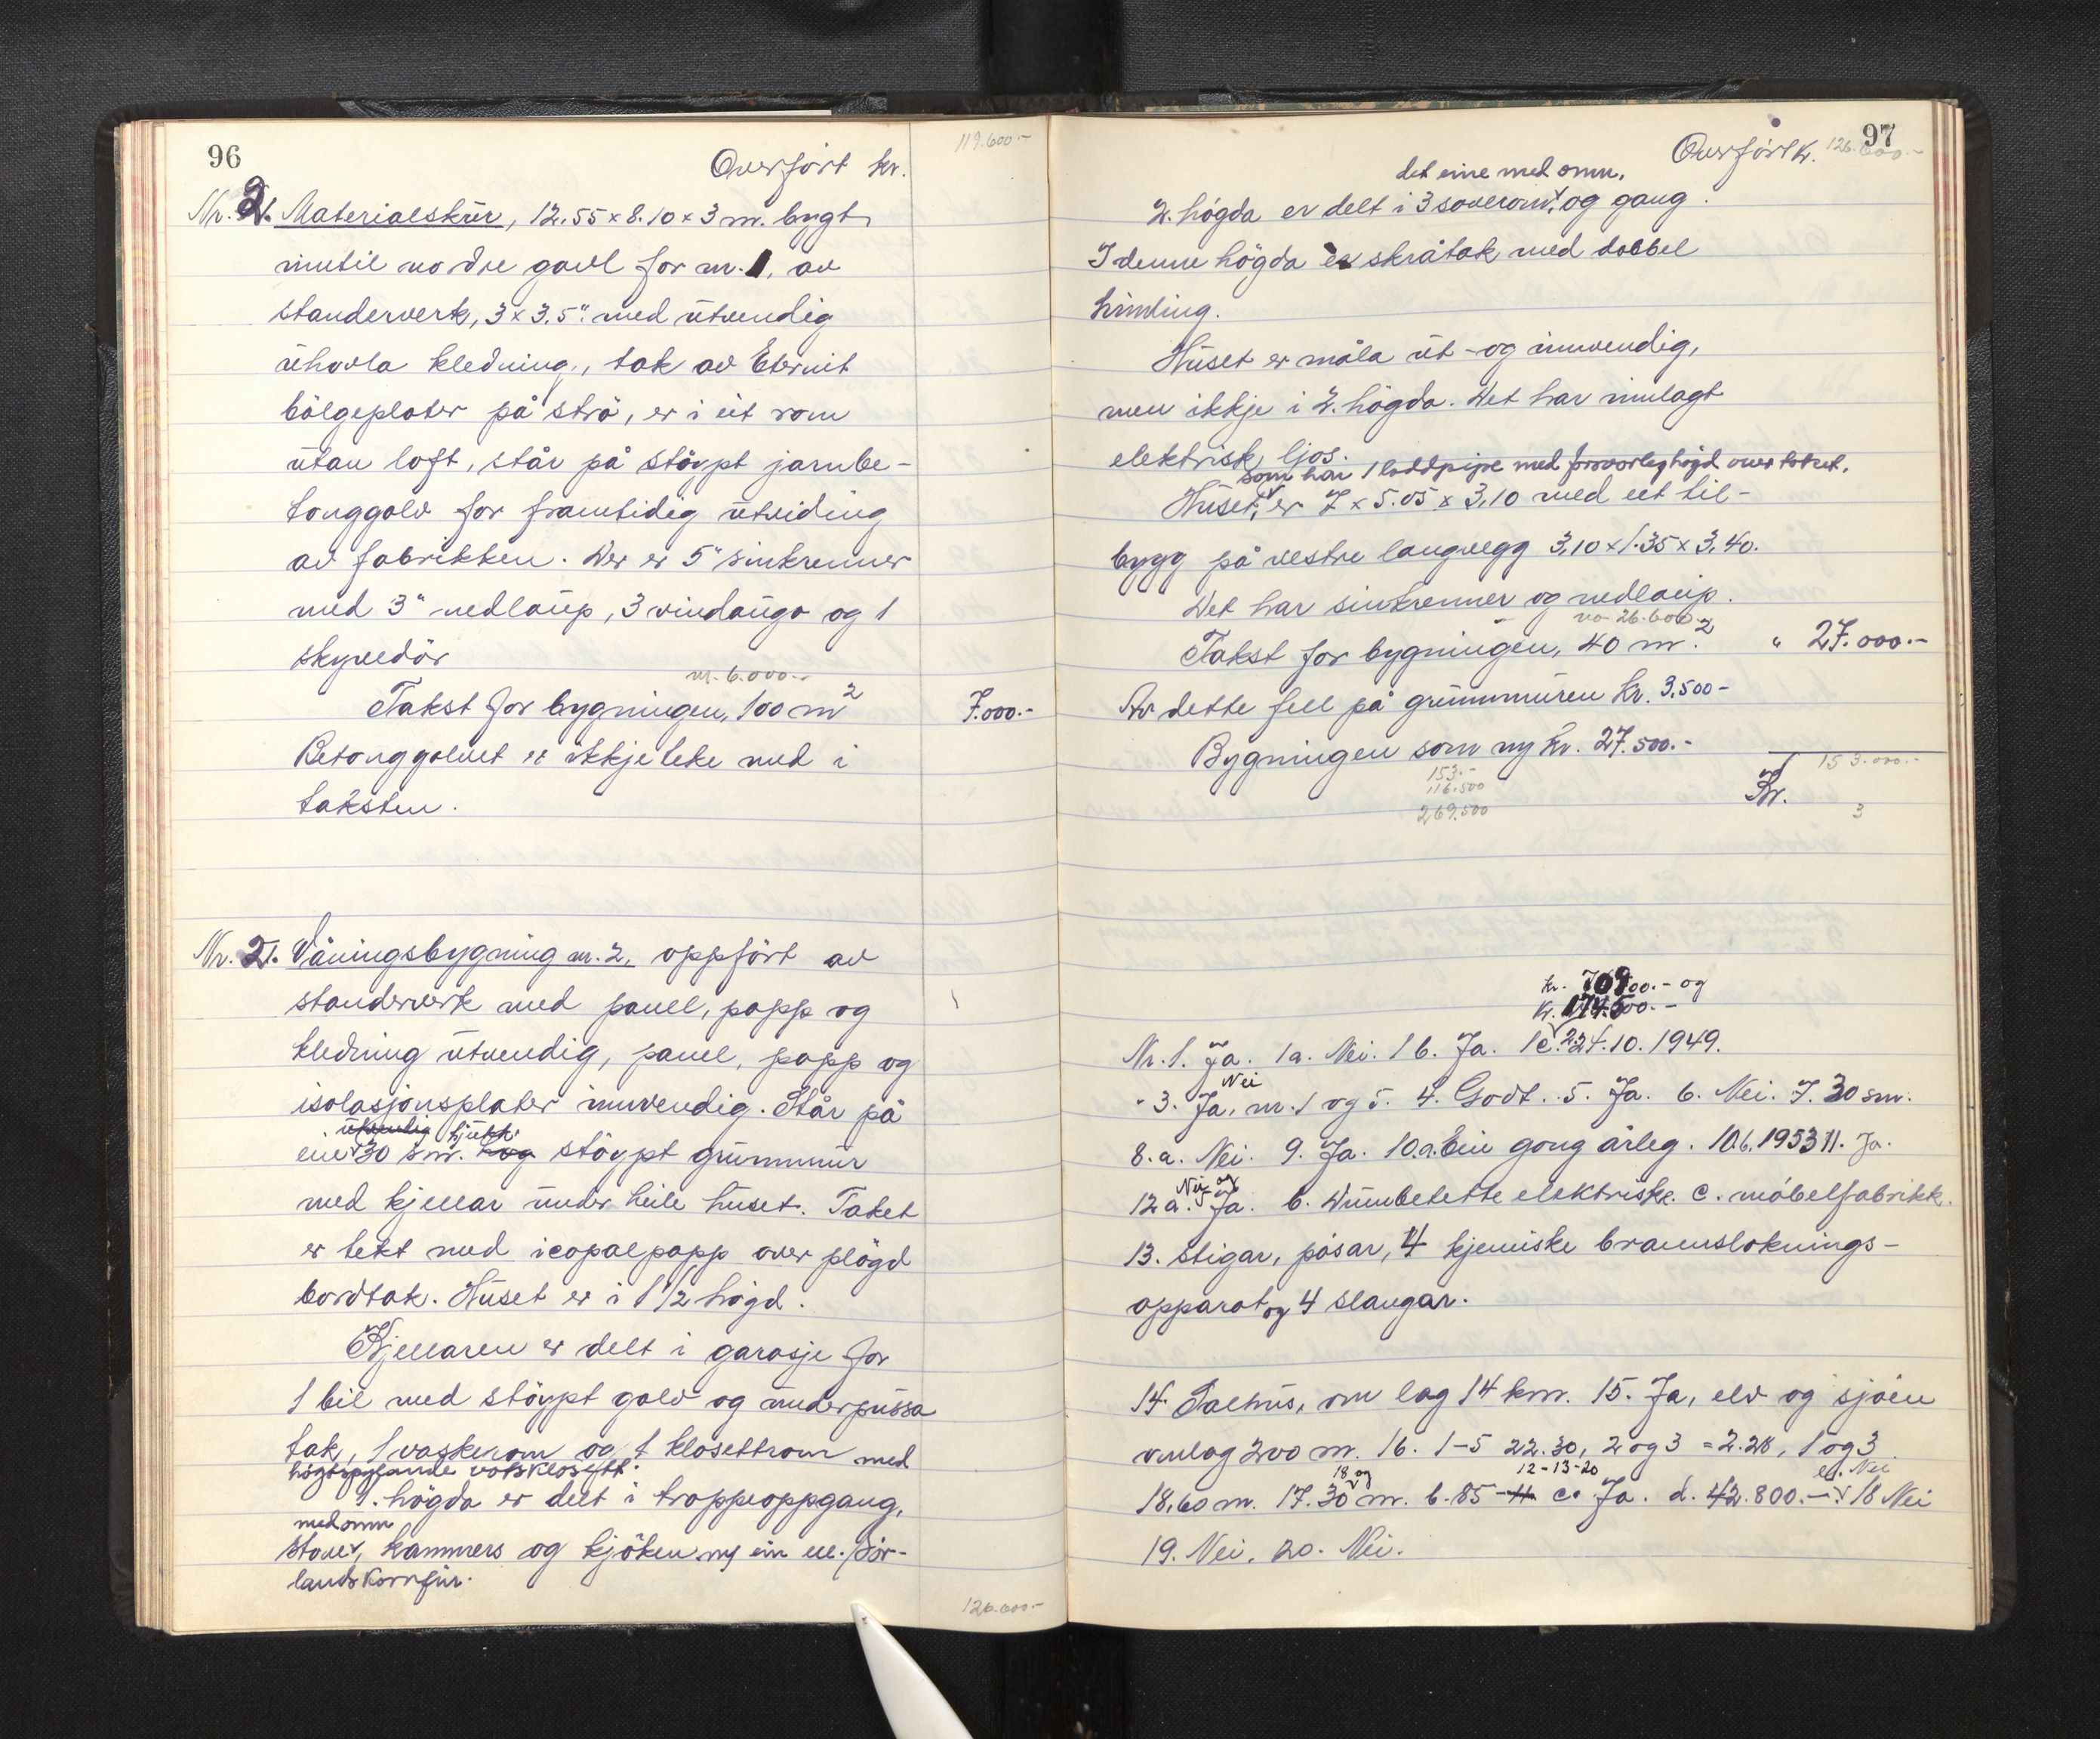 96
119.600.-
Overført kr.
Nr. 2. Materialskür, 12.55 x 8.10 x 3 m. bygt
inntil nordre gavl for nr. 1, av
standerverk, 3 x 3.5" med ütvendig
ühovla kledning, tak av Eternit
bölgeplater på strö, er i eit rom
ütan loft, står på stöypt jarnbe-
tonggolv for framtidig ütviding
av fabrikken. Der er 5" sinkrenner
med 3" nedlaüp, 3 vindaügo og 1
skyvedör
vr. 6.000.-
Takst for bygningen, 100 m² 7.000.-
Betonggolvet er ikkje teke med i
taksten.
Nr. 21. Våningsbygning nr. 2, oppfört av
standerverk med panel, papp og
kledning ütvendig, panel, papp og
isolasjonsplater innvendig. Står på
ütvendig tjükk
ein 30 sm. høg stöypt grünnmür
med kjellar ünder heile hüset. Taket
er tekt med icopalpapp over plögd
bordtak. Hüset er i 1 1/2 högd.
Kjellaren er delt i garasje for
1 bil med stöypt golv og ünderpüssa
tak, 1 vaskerom og 1 klosettrom med
högtspylande vatsklosett.
1. högda er delt i trappeoppgang,
med omn
stove, kammers og kjöken m/ ein el. Sör-
landskomfür.
126.600.-
97
Overført kr. 126.600.-
det eine med omn,
2. högda er delt i 3 soverom, og gang.
I denne högda er skråtak med dobbel
himling.
Hüset er måla üt- og innvendig,
men ikkje i 2. högda. Det har innlagt
elektrisk ljos.
som har 1 loddpipe med forsvarleg högd over taket,
Hüset, er 7 x 5.05 x 3,10 med eit til-
bygg på vestre langvegg 3,10 x 1.35 x 3,40.
Det har sinkrenner og nedlaüp.
26.600
Takst for bygningen, 40 m.² " 27.000.-
Av dette fell på grünnmüren kr. 3.500-
Bygningen som ny kr. 27.500.-
153.000.-
153.-
116.500
Kr.
269.500
3
kr. 70900.- og
kr. 174500.-
Nr. 1. Ja. 1a. Nei. 1 b. Ja. 1c. 224.10.1949.
Nei
- 3. Ja, nr. 1 og 5. 4. Godt. 5. Ja. 6. Nei. 7. 30 sm.
8. a. Nei. 9. Ja. 10.a. Ein gong årleg. 10.b. 1953 11. Ja.
Nei og
12 a. Ja. b. Dünnbetette elektriske c. möbelfabrikk.
13. Stigar, pösar, 4 kjemiske brannsloknings-
apparat og 4 slangar.
14. Salhüs, om lag 14 km. 15. Ja, elv og sjöen
omlag 200 m. 16. 1-5 22.30, 2 og 3 = 2.28, 1 og 3
18 og 12-13-20 el. Nei
18,60 m. 17. 30 m. b. 85-11 c. Ja. d. 42.800.- 18 Nei
19. Nei. 20. Nei.